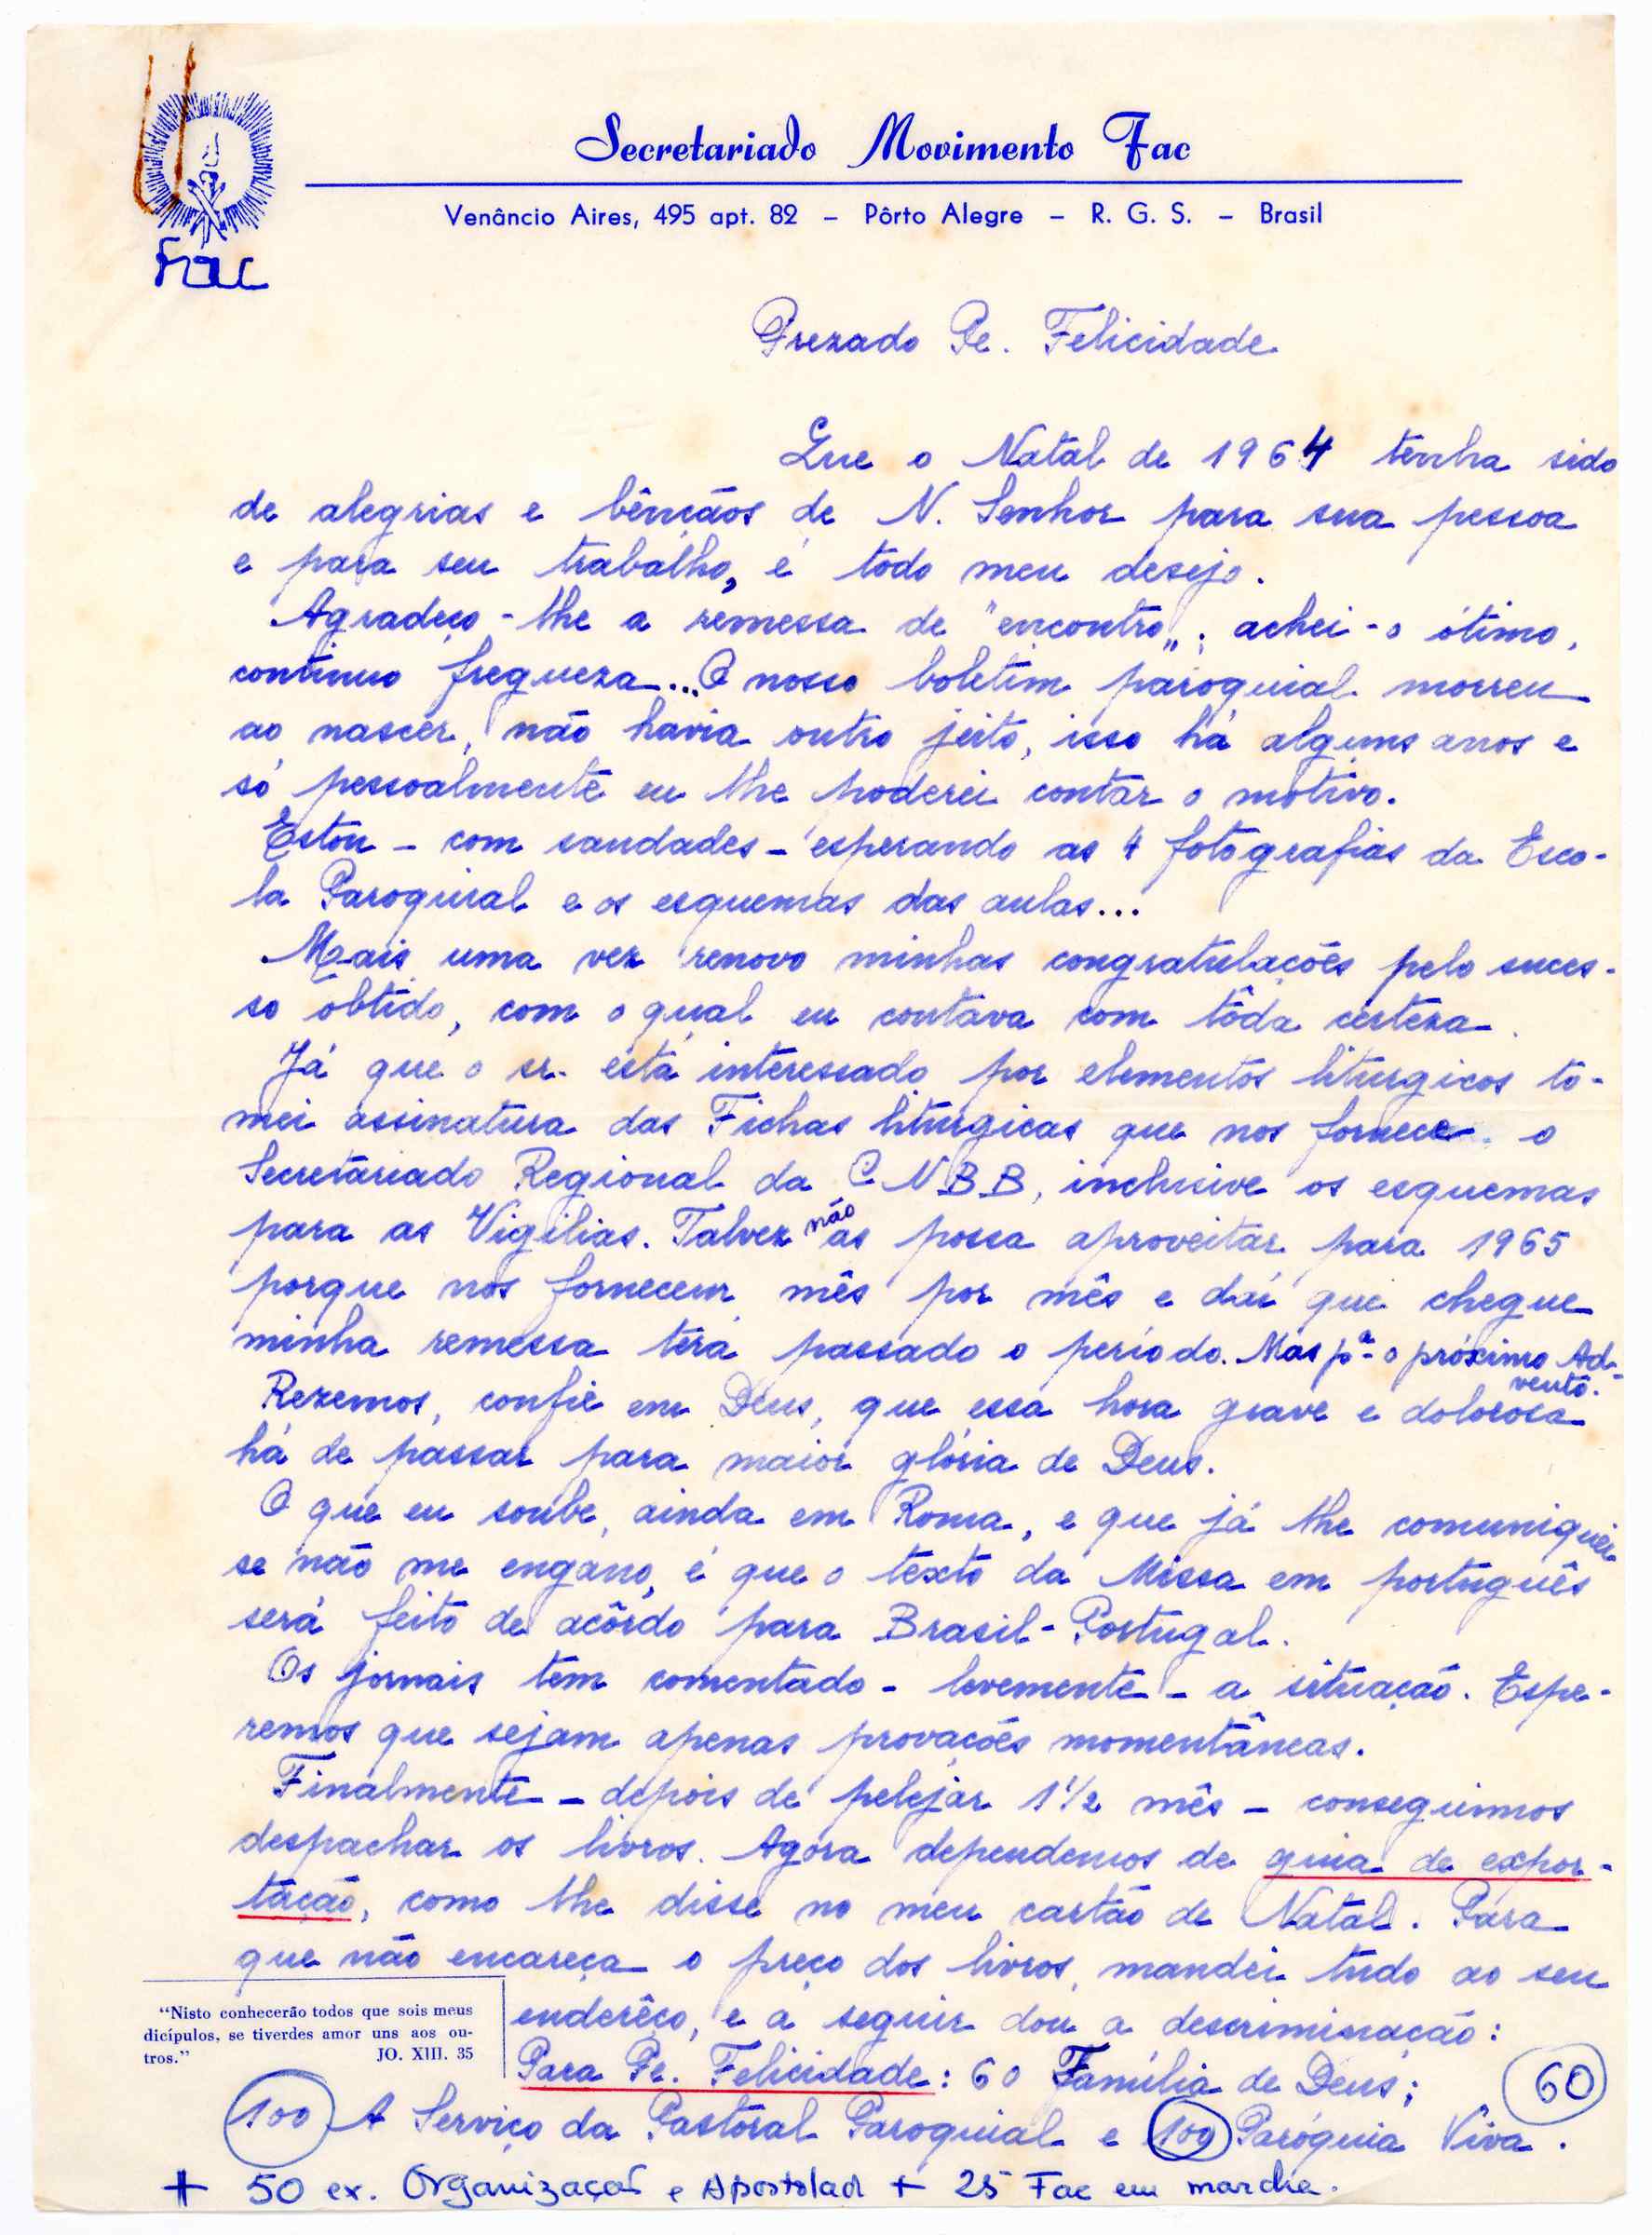 Secretariado Movimento Fac
Venâncio Aires, 495 apt. 82 – Pôrto Alegre – R. G. S. – Brasil
Fac
Prezado Pe. Felicidade
Que o Natal de 1964 tenha sido
de alegrias e bênçãos de N. Senhor para sua pessoa
e para seu trabalho, é todo meu desejo.
Agradeço-lhe a remessa de "encontro"; achei-o ótimo,
continuo fregueza... O nosso boletim paroquial morreu
ao nascer, não havia outro jeito, isso há alguns anos e
só pessoalmente eu lhe poderei contar o motivo.
Estou - com saudades - esperando as 4 fotografias da Esco-
la Paroquial e os esquemas das aulas...
Mais uma vez renovo minhas congratulações pelo suces-
so obtido, com o qual eu contava com tôda certeza.
Já que o sr. está interessado por elementos liturgicos to-
mei assinatura das Fichas liturgicas que nos fornece o
Secretariado Regional da CNBB, inclusive os esquemas
para as Vigílias. Talvez não as possa aproveitar para 1965
porque nos fornecem mês por mês e daí que chegue
minha remessa terá passado o período. Mas pª o próximo Ad-
vento.
Rezemos, confie em Deus, que essa hora grave e dolorosa
há de passar para maior glória de Deus.
O que eu soube, ainda em Roma, e que já lhe comuniquei
se não me engano, é que o texto da Missa em português
será feito de acôrdo para Brasil-Portugal.
Os jornais tem comentado - levemente - a situação. Espe-
remos que sejam apenas provações momentâneas.
Finalmente - depois de pelejar 1 1/2 mês - conseguimos
despachar os livros. Agora dependemos de guia de expor-
tação, como lhe disse no meu cartão de Natal. Para
que não encareça o preço dos livros, mandei tudo ao seu
enderêço, e a seguir dou a descriminação:
"Nisto conhecerão todos que sois meus
dicípulos, se tiverdes amor uns aos ou-
tros." JO. XIII. 35
Para Pe. Felicidade: 60 Família de Deus; 60
100 A Serviço da Pastoral Paroquial e 100 Paróquia Viva.
+ 50 ex. Organização e Apostolado + 25 Fac em marcha.